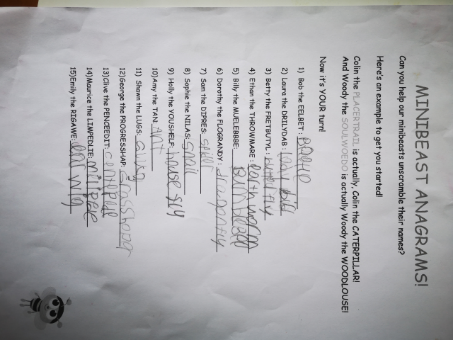 MINIBEAST ANAGRAMS!
Can you help our minibeasts unscramble their names?
Here's an example to get you started!
Colin the PLACERTRAIL is actually, Colin the CATERPILLAR!
And Woody the SOULWOEDO is actually Woody the WOODLOUSE!
Now it's YOUR turn!
1) Bob the EELBET: Beetle
2) Laura the DRILYDAB: Lady bird
3) Betty the FRETBUTYL: butterfly
4) Ethan the THROWMARE: earthworm
5) Billy the MUELEBBRE: Bumblebee
6) Dorothy the FLODRANDY: dragonfly
7) Sam the DIPRES:
8) Sophie the NILAS: Snail
9) Holly the YOULSHELF: house fly
10) Amy the TAN: Ant
11) Shaun the LUGS: Slug
12) George the PROGRESSHAP: Grasshopper
13) Clive the PENCEEDIT:
14) Maurice the LIMPEDLIE:
15) Emily the RIGAWE: ear wig